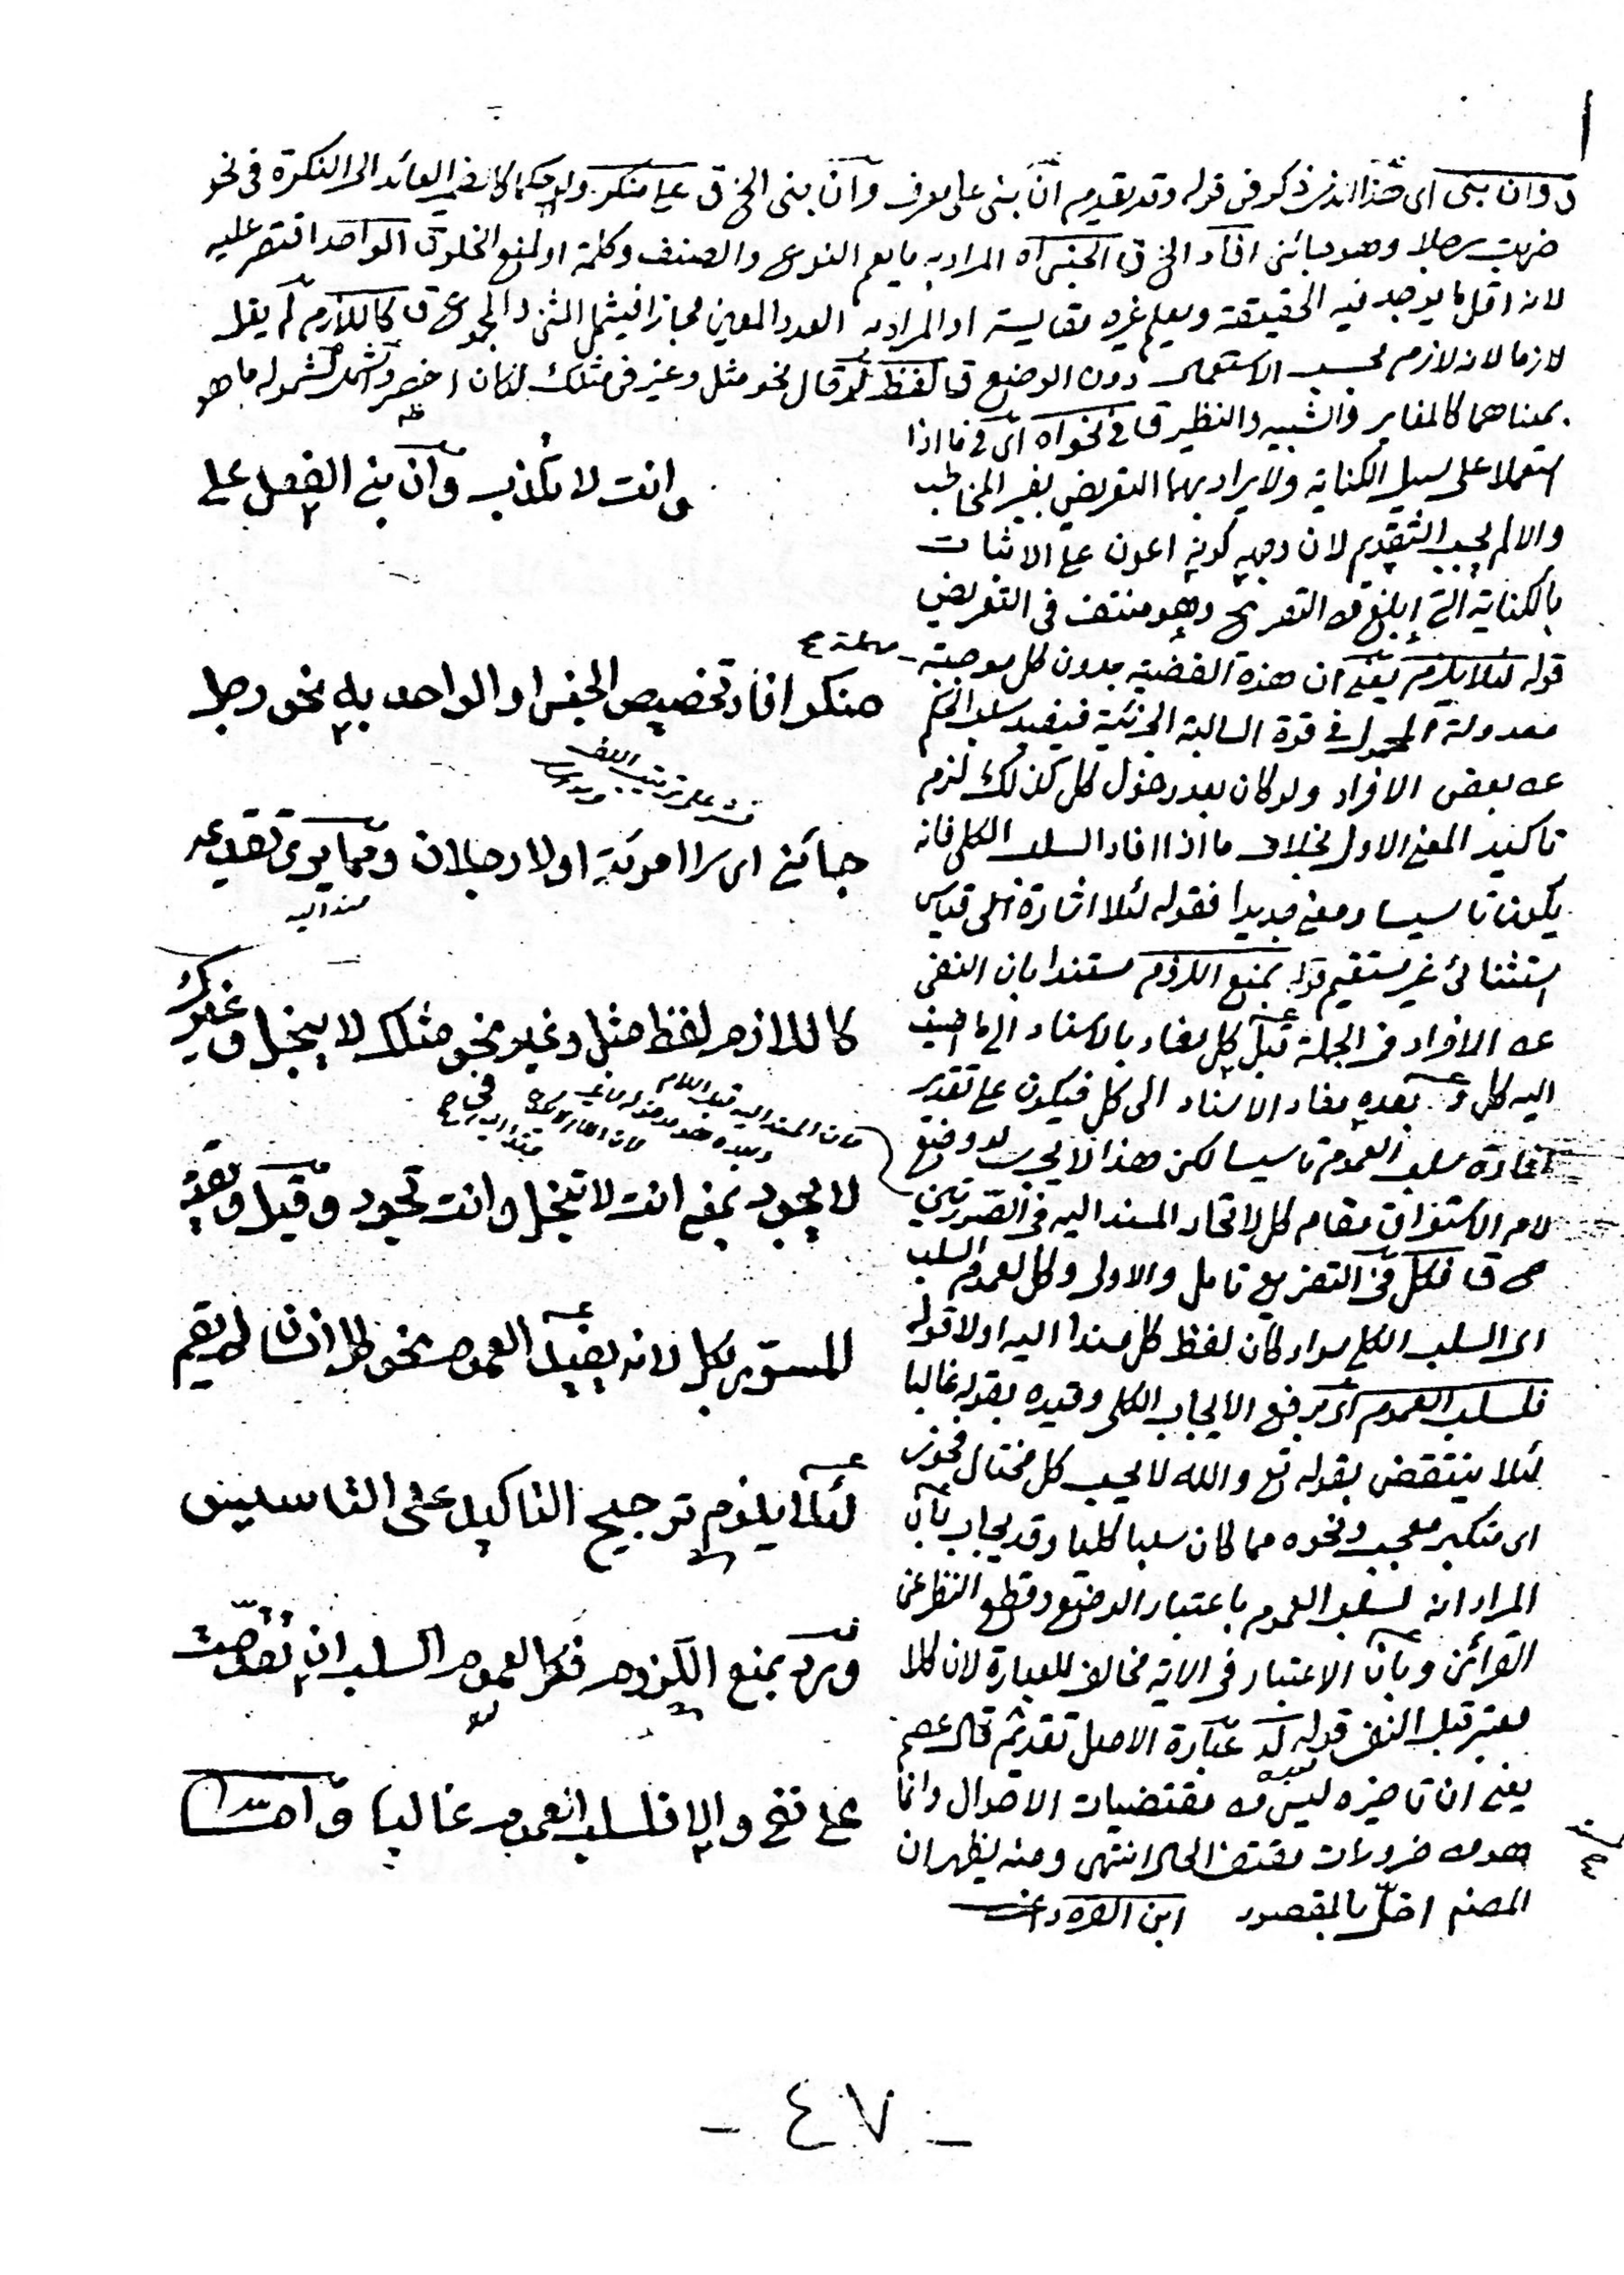 ق وان بنى اى هذا الذى ذكر فى قوله وقد يقدم ان بنى على معرف وان بنى الخ ق على منكر ولو حكما كالضمير العائد الى النكرة فى نحو
ضربت رجلا وهو جائنى افاد الخ ق الجنس اه المراد به ما يعم النوع والصنف وكلمة او لمنع الخلو ق الواحد اقتصر عليه
لانه اقل ما يوجد فيه الحقيقة ويعلم غيره مقايسة او المراد به العدد المعين مجازا فيشمل المثنى والمجموع ق كاللازم لم يقل
لازما لانه لازم بحسب الاستعمال دون الوضع ق لفظ لو قال نحو مثل وغير فى مثلك لكان اخصر واشمل لشموله ما هو
بمعناهما كالمغاير والشبيه والنظير ق فى نحو اه اى فى ما اذا
استعملا على سبيل الكناية ولا يراد بهما التعريض بغير المخاطب
والا لم يجب التقديم لان وجهه كونه اعون على الاثبات
بالكناية التى ابلغ من التصريح وهو منتف فى التعريض
قوله لئلا يلزم يعنى ان هذه القضية بدون كل موجبة مهملة
معدولة المحمول فى قوة السالبة الجزئية فيفيد سلب الحكم
عن بعض الافراد ولو كان بعد دخول كل كذلك لزم
تاكيد المعنى الاول بخلاف ما اذا افاد السلب الكلى فانه
يكون تاسيسا ومعنى جديدا فقوله لئلا اشارة الى قياس
استثنائى غير مستقيم قوله بمنع اللزوم مستندا بان النفى
عن الافراد فى الجملة قبل كل مفاد بالاسناد الى ما اضيف
اليه كل وبعده مفاد الاسناد الى كل فيكون على تقدير
افادة سلب العموم تاسيسا لكن هذا لا يجرى لو وضع
لام الاستغراق مقام كل لاتحاد المسند اليه فى الصورتين
ق فكل فى التفريع تامل والاولى وكل لعموم السلب
اى السلب الكلى سواء كان لفظ كل مسندا اليه اولا قوله
فلسلب العموم اى رفع الايجاب الكلى وقيده بقوله غالبا
لئلا ينتقض بقوله تع والله لا يحب كل مختال فخور
اى متكبر معجب ونحوه مما كان سلبا كليا وقد يجاب بان
المراد انه لسلب العموم باعتبار الوضع وقطع النظر عن
القرائن وبان الاعتبار فى الاية مخالف للعبارة لان كلا
معتبر قبل النفى قوله عبارة الاصل تقديم قال عصم
يعنى ان تاخيره ليس من مقتضيات الاحوال وانما
هو من ضروريات مقتضى الحال انتهى ومنه يظهر ان
المصنف اخل بالمقصود ابن القره داغى
وانت لا تكذب وان بنى الفعل على
منكر افاد تخصيص الجنس او الواحد به نحو رجل
جائنى اى لا امرئة او لا رجلان ومما يرى تقديمه
مسند اليه
كاللازم لفظ مثل وغير نحو مثلك لا يبخل وغيرك
لا يجود بمعنى انت لا تبخل وانت تجود وقيل وتقديم
المسور بكل لانه يفيد العموم نحو كل انسان لم يقم
لئلا يلزم ترجيح التاكيد على التاسيس
ورد بمنع اللزوم فكل لعموم السلب ان تقدمت
على نفى والا فلسلب العموم غالبا واما
- ٤٧ -